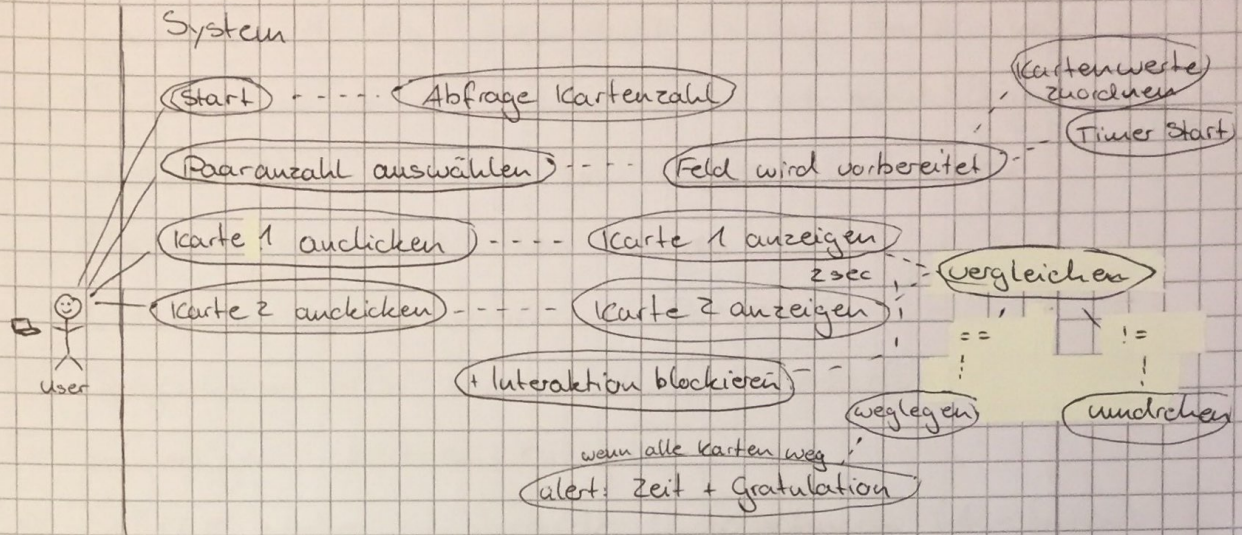 System
Start
Abfrage Kartenzahl
Kartenwerte
zuordnen
Timer Start
Paaranzahl auswählen
Feld wird vorbereitet
Karte 1 anclicken
Karte 1 anzeigen
2 sec
vergleichen
Karte 2 anclicken
Karte 2 anzeigen
==
!=
User
+ Interaktion blockieren
weglegen
umdrehen
wenn alle Karten weg
alert: Zeit + Gratulation